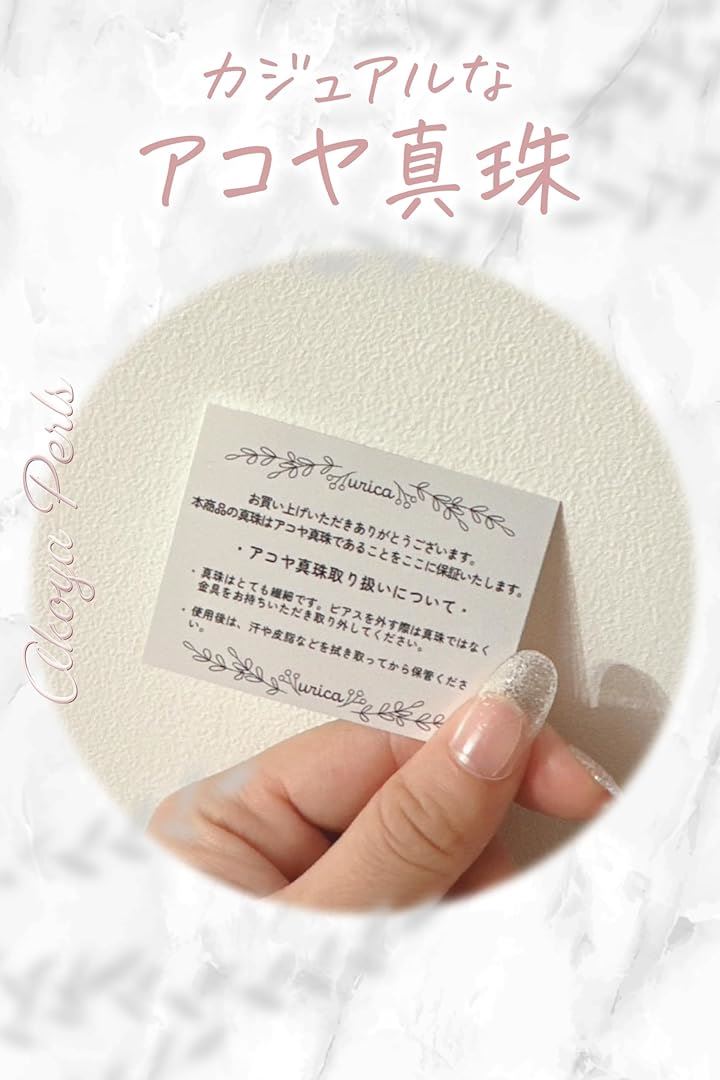 カジュアルな
アコヤ真珠
Akoya Perls
urica
お買い上げいただきありがとうございます。
本商品の真珠はアコヤ真珠であることをここに保証いたします。
・アコヤ真珠取り扱いについて・
・真珠はとても繊細です。ピアスを外す際は真珠ではなく
金具をお持ちいただき取り外してください。
・使用後は、汗や皮脂などを拭き取ってから保管くださ
い。
urica